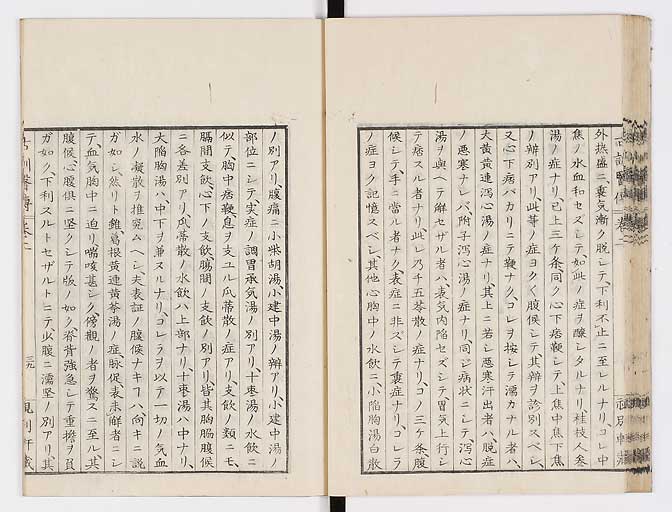 外熱盛ニ裏気漸ク脱シテ、下利不止ニ至レルナリ、コレ中
焦ノ水血和セズシテ如此ノ症ヲ醸シタルナリ、桂枝人参
湯ノ症ナリ、已上三ケ条、同ク心下痞鞕シテ、上焦中焦下焦
ノ辨別アリ、此等ノ症ヨク〱腹候シテ其辨ヲ診別スベシ、
又心下痞バカリニテ鞕ナク、コレヲ按シテ濡カナル者ハ、
大黄黄連瀉心湯ノ症ナリ、其上ニ若シ悪寒汗出者ハ、脱症
ノ悪寒ナレバ、附子瀉心湯ノ症ナリ、同ジ病状ニシテ、瀉心
湯ヲ與ヘテ解セザル者ハ、表気内陥セズシテ胃気上行シ
テ痞スル者ナリ、此レ乃チ五苓散ノ症ナリ、コノ三ケ条腹
候シテ、手ニ當ル者ナク、表症ニ非ズシテ裏症ナリ、コレラ
ノ症ヨク記憶スベシ、其他心胸中ノ水飲ニ、小陥胸湯白散
ノ別アリ、腹痛ニ小柴胡湯、小建中湯ノ辨アリ、小建中湯ノ
部位ニシテ実症ノ調胃承気湯ノ別アリ、十棗湯ノ水飲ニ
似テ、胸中痞鞕息ヲ支ユル瓜蒂散ノ症アリ、支飲ノ類ニモ、
膈間支飲、心下ノ支飲、腸間ノ支飲ノ別アリ、皆其胸脇腹候
ニ各差別アリ、瓜蒂散ノ水飲ハ上部ナリ、十棗湯ハ中ナリ、
大陥胸湯ハ中下ヲ兼スルナリ、コレラヲ以テ一切ノ気血
水ノ凝散ヲ推究ムヘシ、夫表証ノ腹候ナキコハ、向キニ説
ガ如シ、然リト雖葛根黄連黄芩湯ノ症、脉促表未解者ニシ
テ、血気胸中ニ迫リ喘咳甚シク、傍観ノ者ヲ驚スニ至ル、其
腹候、心腹倶ニ堅クシテ版ノ如ク、脊背強急シテ重擔ヲ負
ガ如ク、下利スルトセザルトニテ必腹ニ濡堅ノ別アリ、其
三九